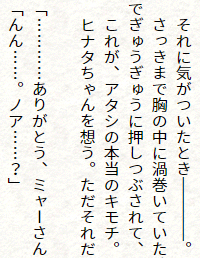 それに気がついたとき――――。
さっきまで胸の中に渦巻いていた
でぎゅうぎゅうに押しつぶされて、
これが、アタシの本当のキモチ。
ヒナタちゃんを想う。ただそれだ
「…………ありがとう、ミャーさん
「んん……。ノア……？」